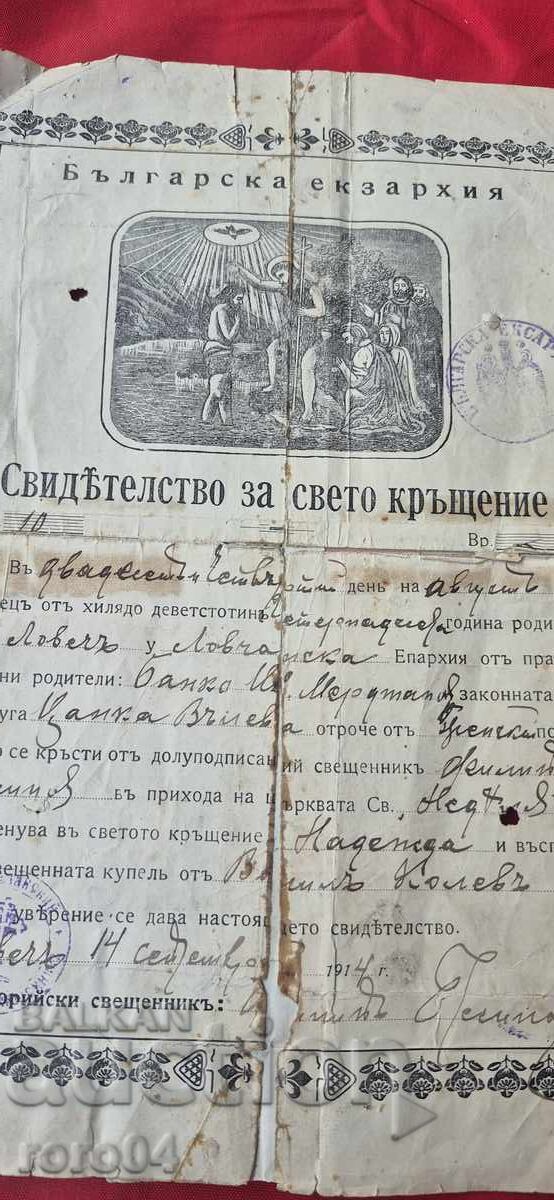 Българска екзархия
БЪЛГАРСКА ЕКСАР
Свидѣтелство за свето кръщение
10
Вр.
Въ двадесетъ и четвъртий день на августъ
ецъ отъ хилядо деветстотинъ четеринадесета година роди
Ловечъ у Ловчанска Епархия отъ пра
ни родители: Банко Ив. Мерджановъ законната
уга Цанка Вълева отроче отъ женски по
о се кръсти отъ долуподписаний свещеникъ Филип
въ прихода на църквата Св. Недѣля
енува въ светото кръщение Надежда и възп
вещенната купель отъ Василъ Колевъ
увѣрение се дава настоящето свидѣтелство.
вечъ 14 септемврий 1914 г.
орийски свещеникъ:
BALKAN
auction
roro04